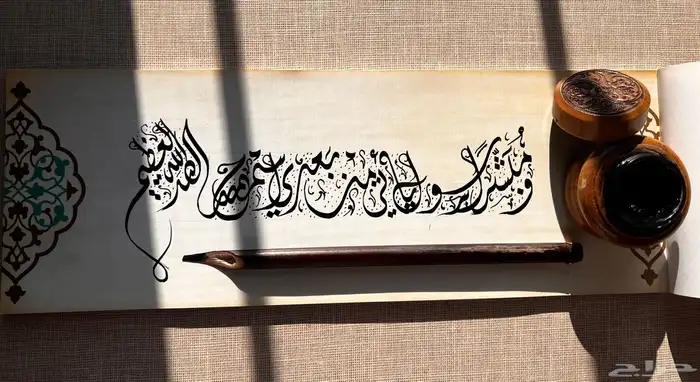 ومبشرا برسول يأتي من بعدي اسمه أحمد صدق الله العظيم
حراج